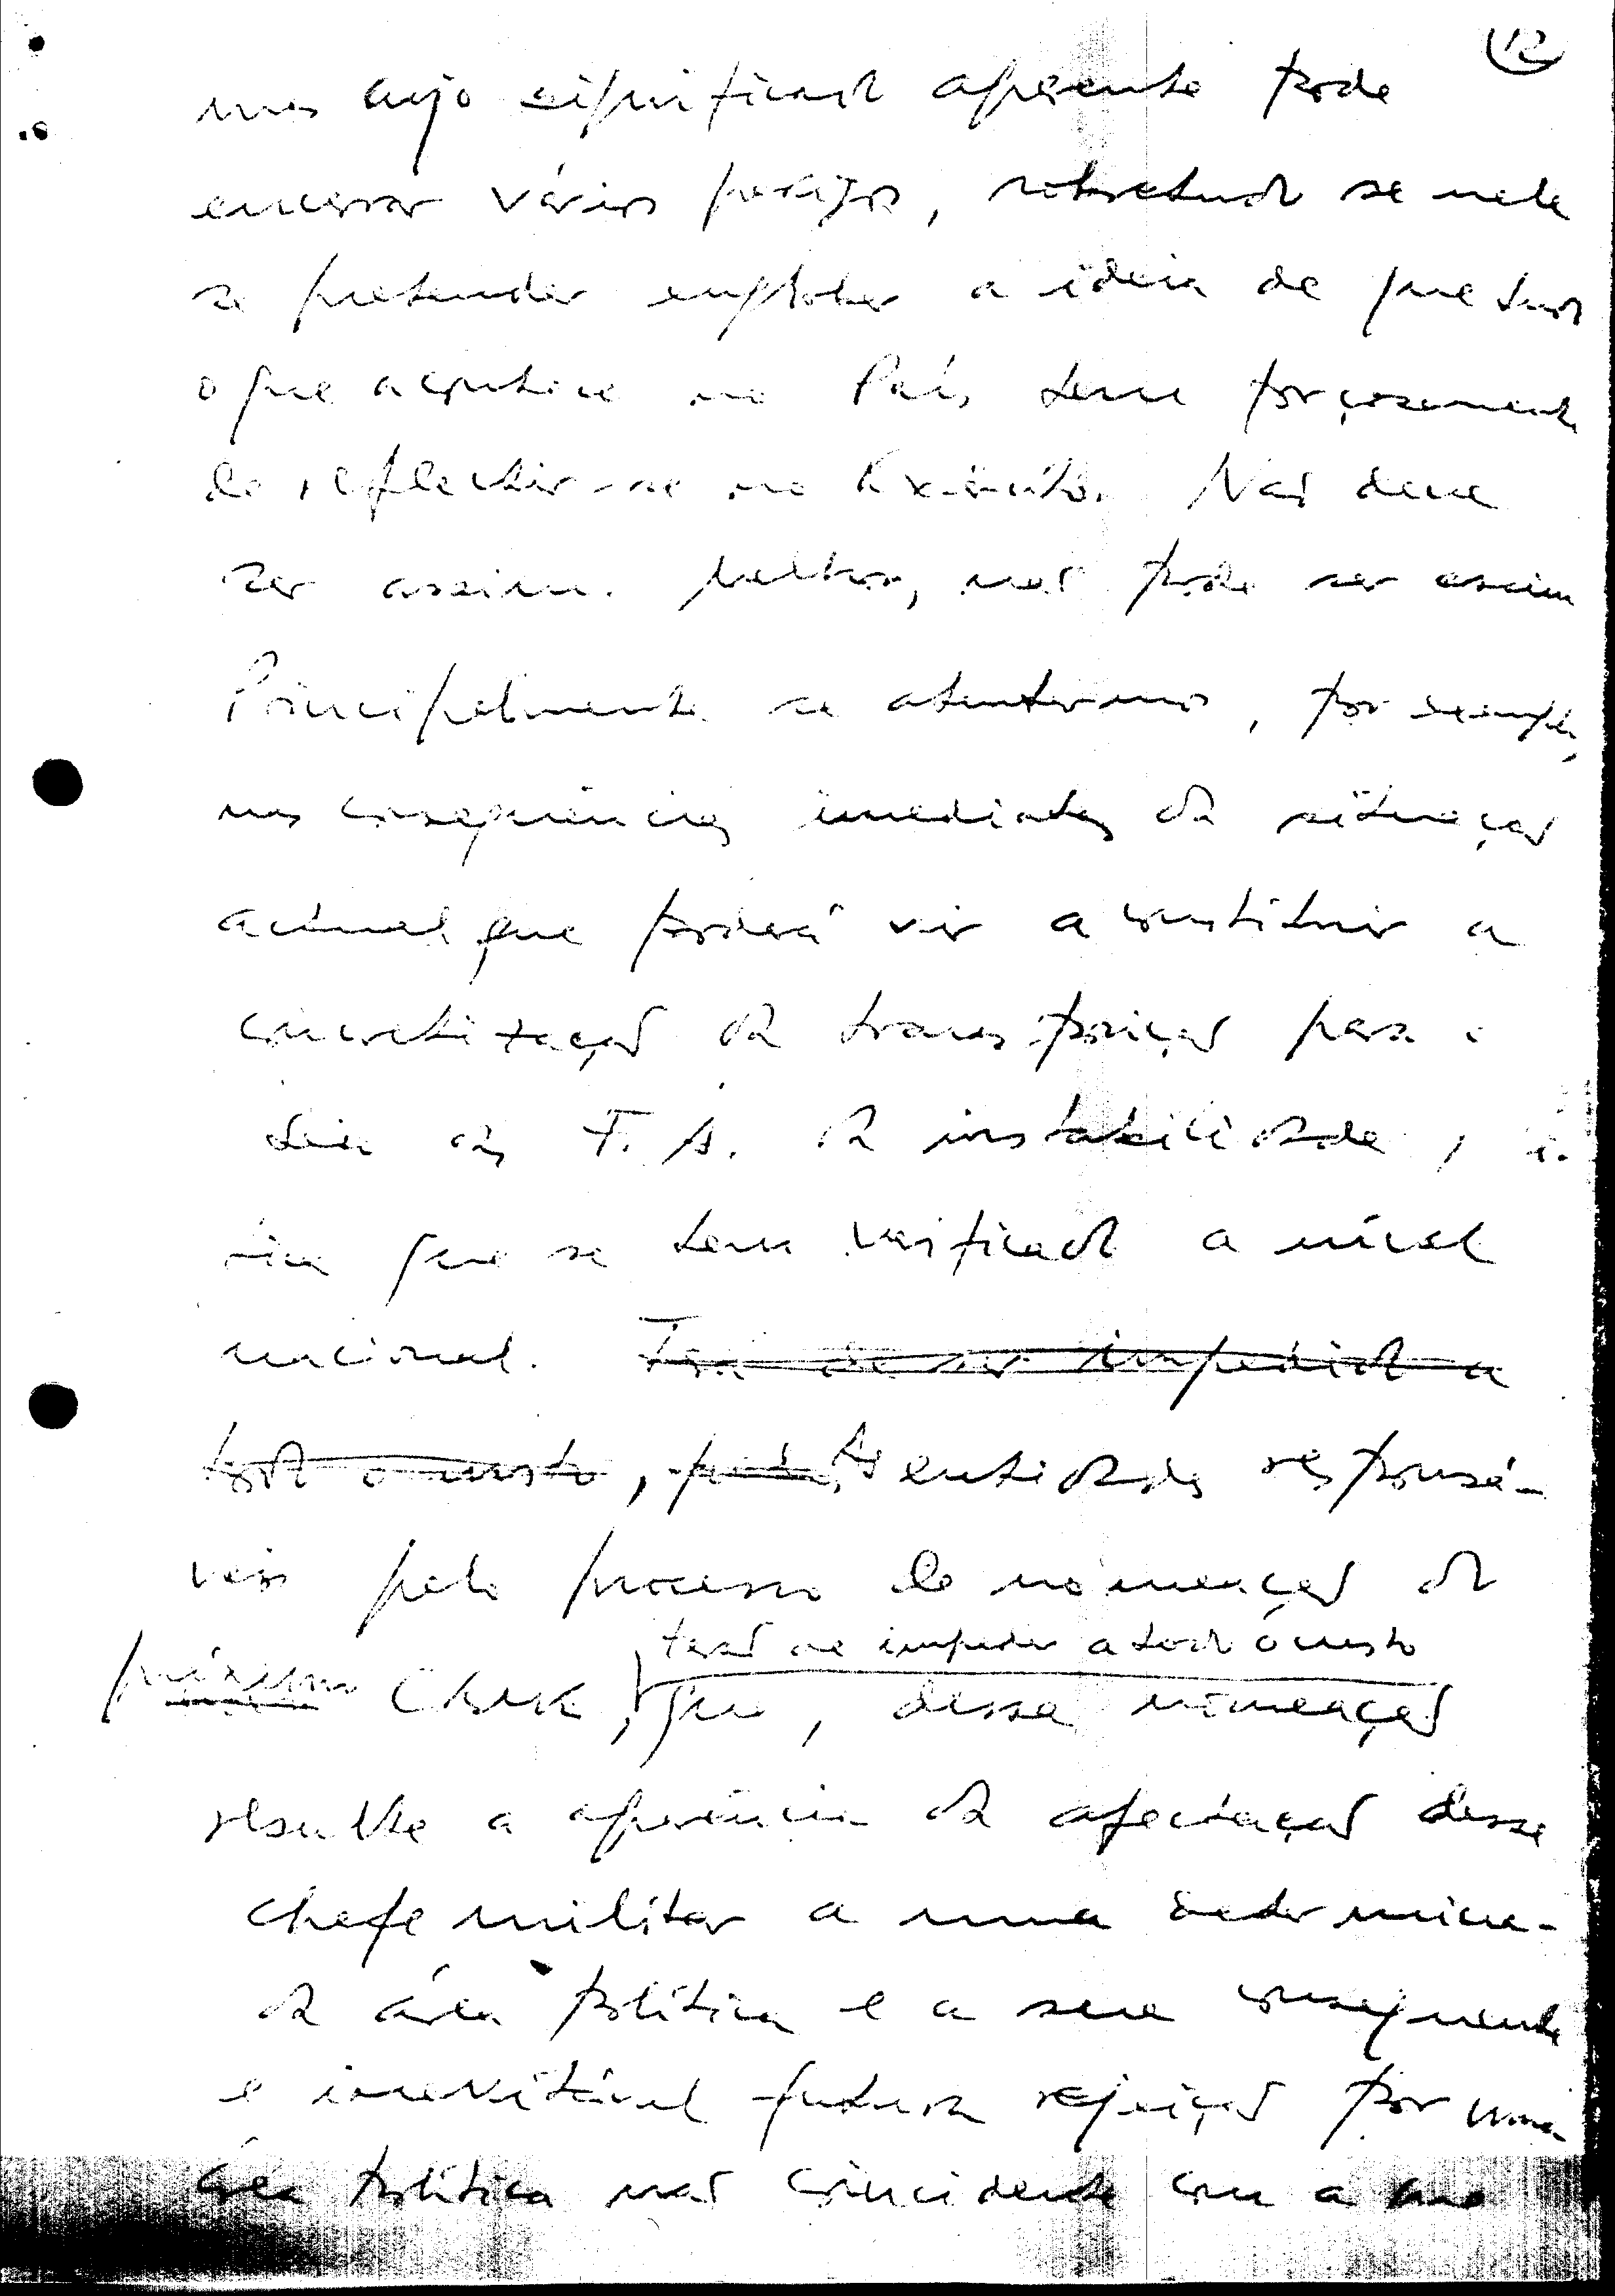 12
mas cujo significado aparente pode
encerrar vários perigos, sobretudo se nele
se pretender englobar a ideia de que tudo
o que acontece no País tem forçosamente
de reflectir-se no Exército. Não deve
ser assim. Melhor, não pode ser assim
Principalmente se atentarmos, por exemplo,
nas consequências imediatas da situação
actual que poderá vir a constituir a
concretização da transposição para o
seio das F. A. da instabilidade
que se tem verificado a nível
nacional. Terá de ser impedido a
todo o custo, pelas As entidades responsá-
veis pelo processo de nomeação do
terão de impedir a todo o custo
próximo CEME, que, dessa nomeação
resulte a aparência da afectação desse
chefe militar a uma determina-
da área política e a sua consequente
e inevitável futura rejeição por uma
área política não coincidente com a que